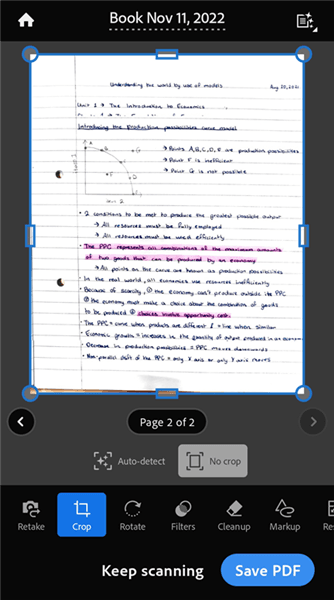 Book Nov 11, 2022
Understanding the world by use of models
Aug 25, 2021
Unit 1 → The Introduction to Economics
Introducing the production possibilities curve model
→ Points A,B,C,D,E are production possibilities
→ Point F is inefficient
→ Point G is not possible
• 2 conditions to be met to produce the greatest possible output
→ All resources must be fully employed
→ All resources must be used efficiently
• The PPC represents all combinations of the maximum amounts
of two goods that can be produced by an economy
→ All points on the curve are known as production possibilities
• In the real world, all economies use resources inefficiently
• Because of scarcity, ① the economy can't produce outside its PPC
② the economy must make a choice about the combination of goods
to be produced ③ choices involve opportunity cost.
• The PPC = curve when products are different & = line when similar
• Economic growth = increases in the quantity of output produced in an economy
• Decrease in production possibilities = PPC moves downwards
• Non-parallel shift of the PPC = only X axis or only Y axis moves
Page 2 of 2
Auto-detect
No crop
Retake
Crop
Rotate
Filters
Cleanup
Markup
Keep scanning
Save PDF